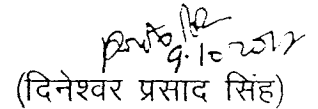 9.10.2017
(दिनेश्वर प्रसाद सिंह)